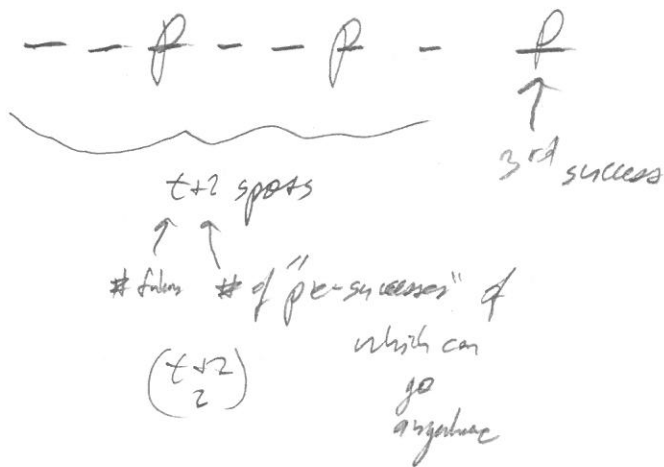 – – p – – p – p
3rd success
t+2 spots
# of "pre-successes" of
which can
go
anywhere
(t+2
2)